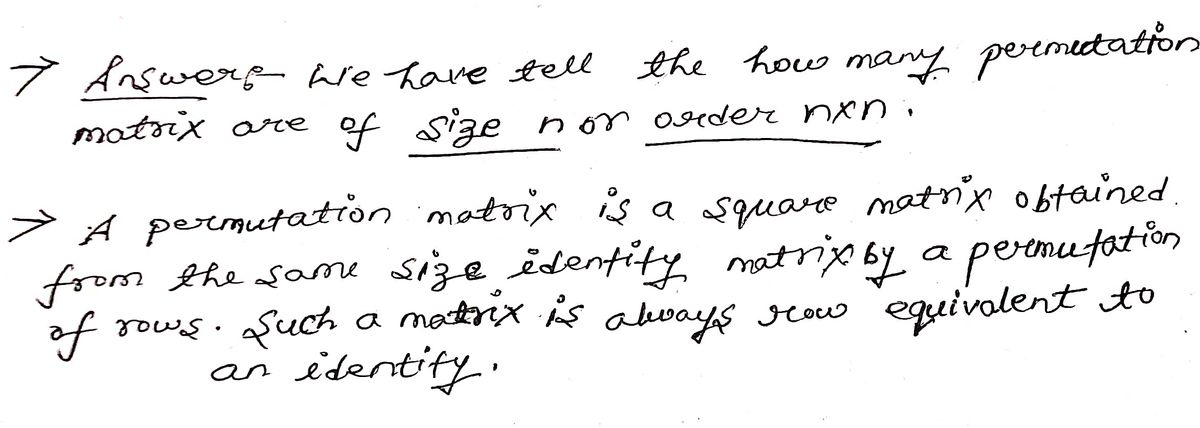 → Answer:- We have tell the how many permutation
matrix are of size n or order nxn.
→ A permutation matrix is a square matrix obtained
from the same size identity matrix by a permutation
of rows. Such a matrix is always row equivalent to
an identity.